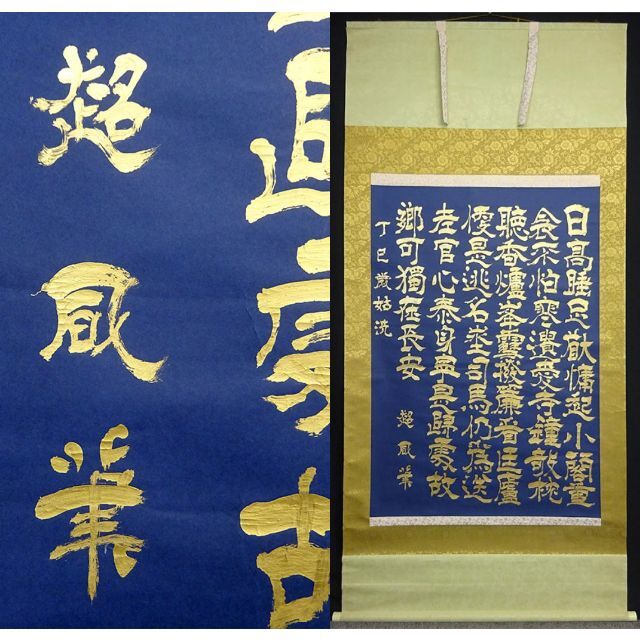 超風筆
日高睡足猷慵起小閣重
衾不怕寒遺愛寺鐘敧枕
聽香爐峯雪撥簾看匡廬
便是逃名埊司馬仍為送
老官心泰身寧是歸處故
鄉可獨在長安
丁巳歲姑洗
超風筆